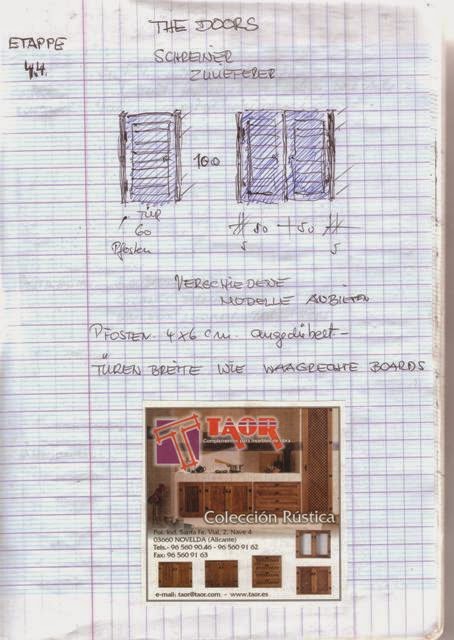 THE DOORS
ETAPPE
4.4
SCHREINER
ZULIEFERER
100
TÜR
60
Pfosten
50 + 50
5 5
VERSCHIEDENE
MODELLE ANBIETEN
PFOSTEN 4x6 cm. angedübelt -
TÜREN BREITE WIE WAAGRECHTE BOARDS
TAOR
Complementos para muebles de obra
Colección Rústica
Pol. Ind. Santa Fe, Vial, 2, Nave 4
03660 NOVELDA (Alicante)
Tels.- 96 560 90 46 - 96 560 91 62
Fax: 96 560 91 63
e-mail: taor@taor.com - www.taor.es